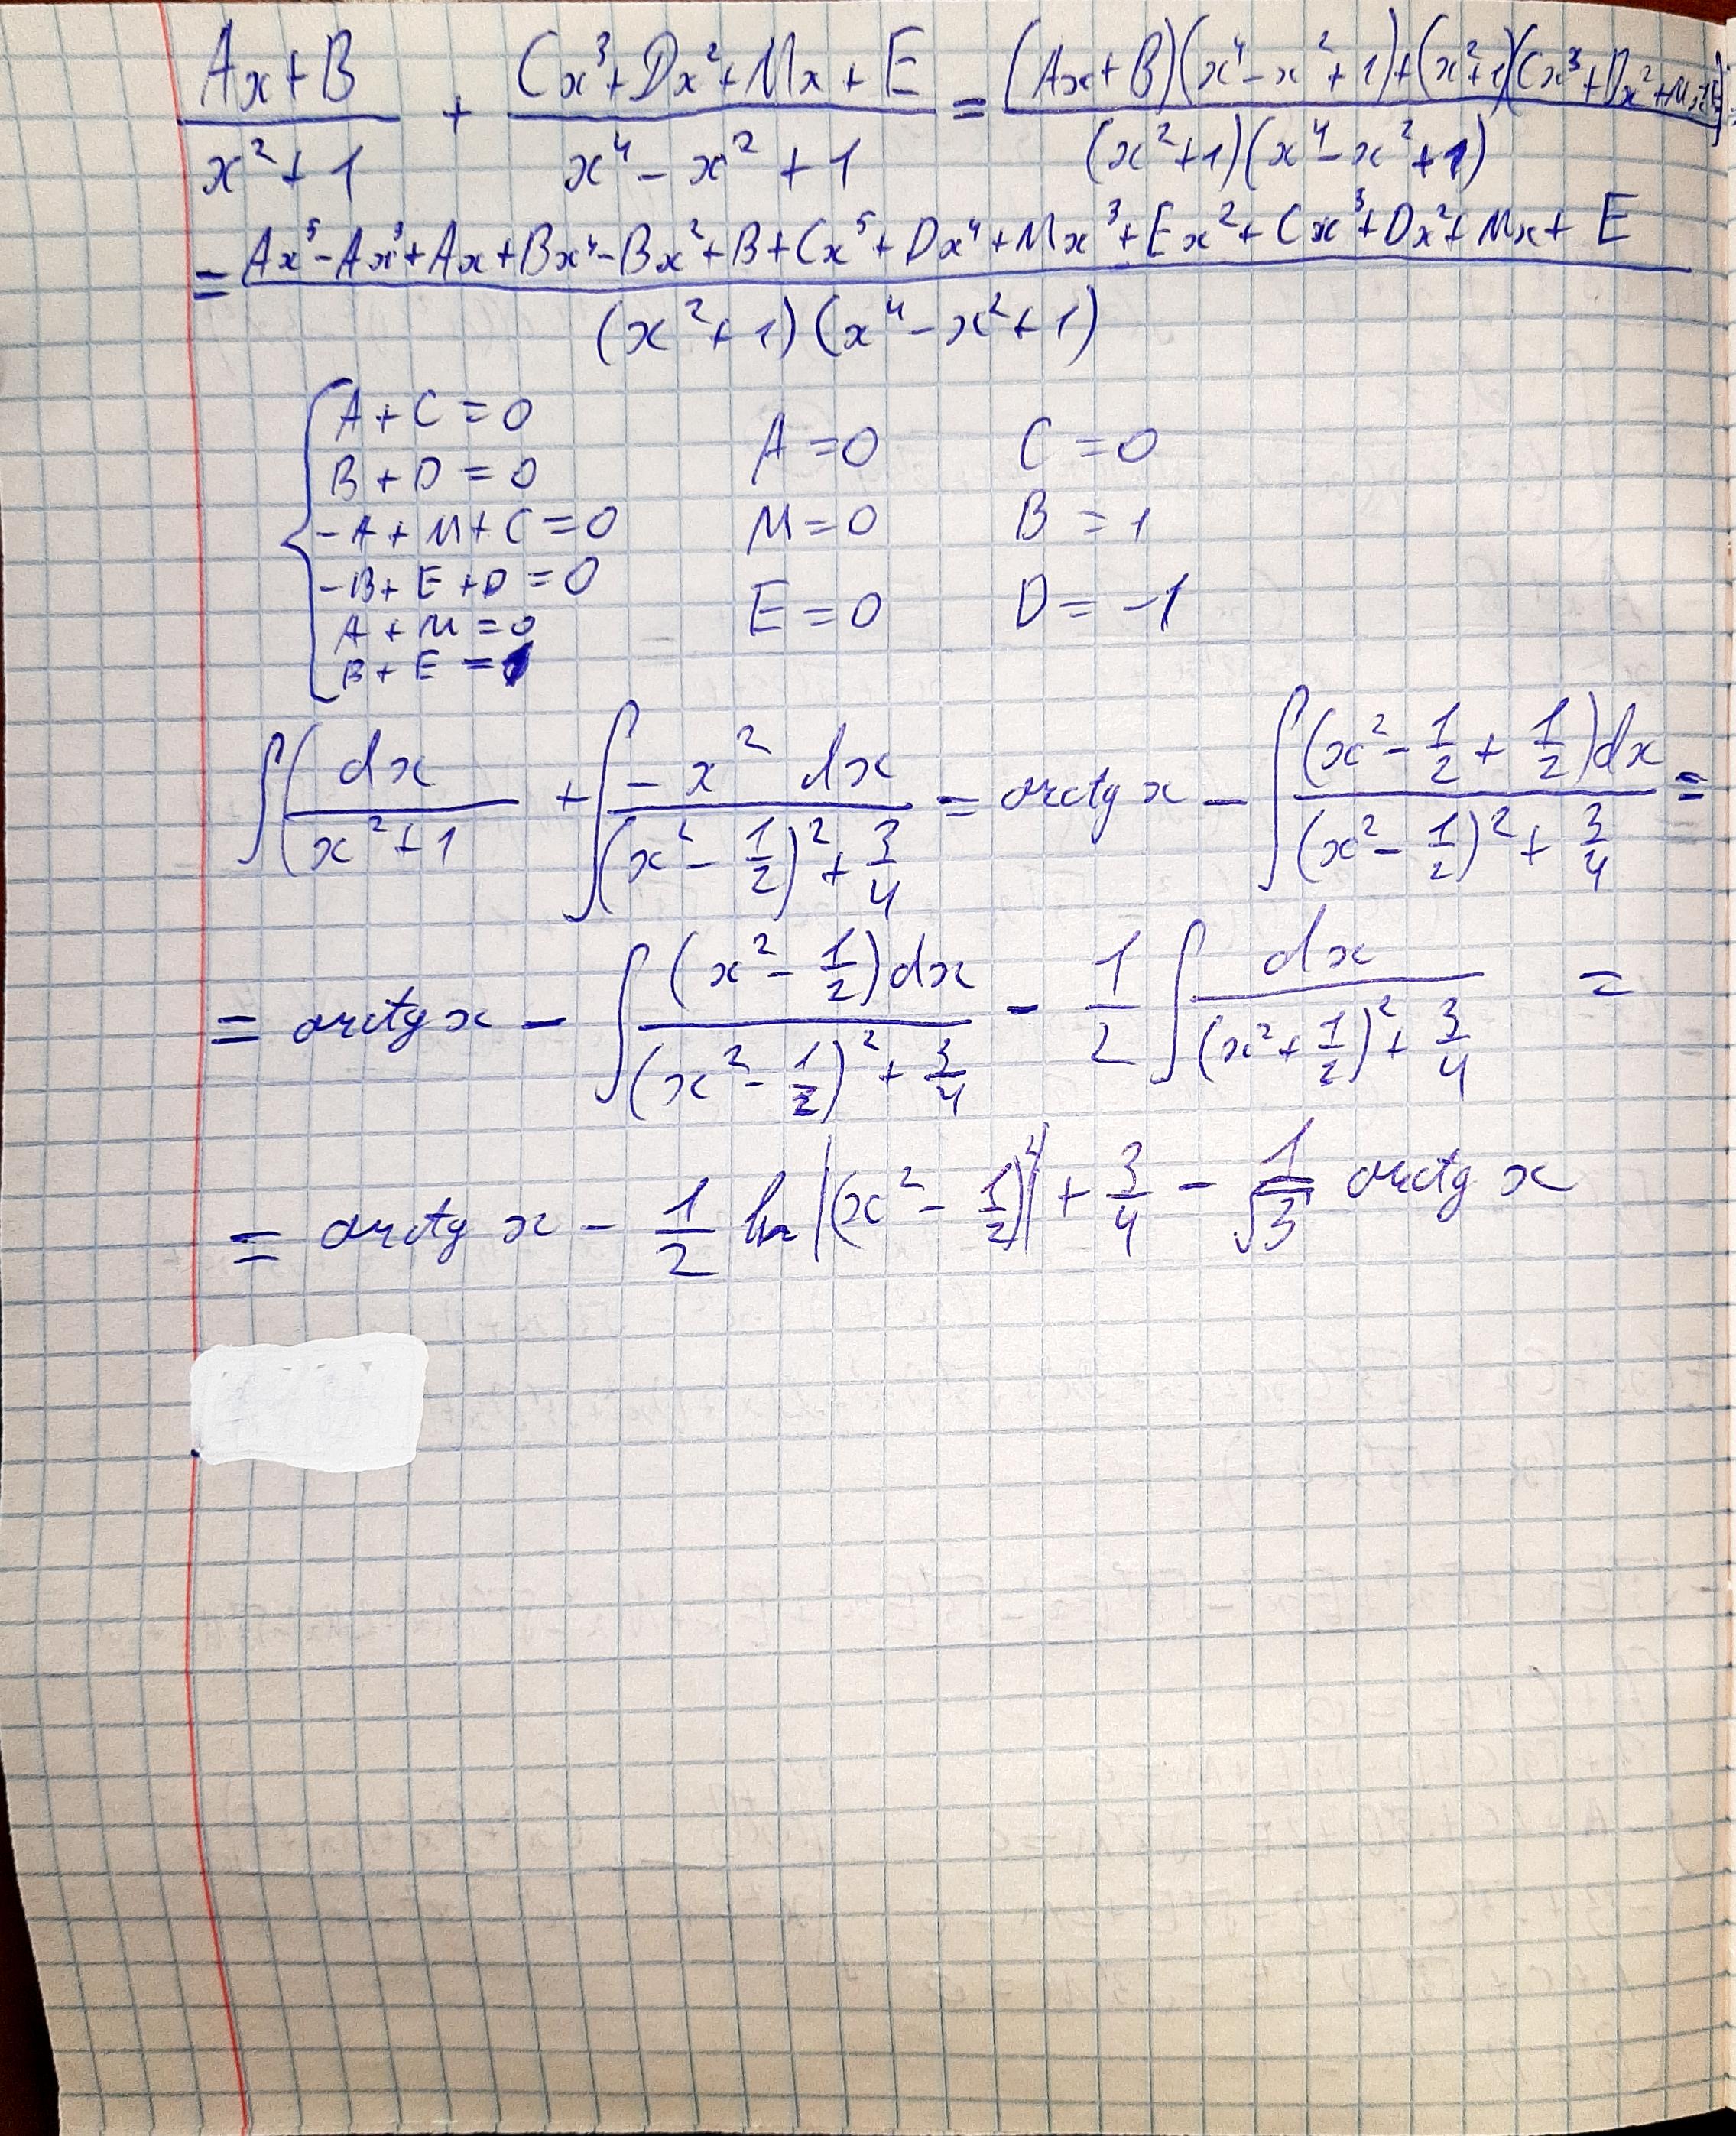 (Ax + B)/(x² + 1) + (Cx³ + Dx² + Mx + E)/(x⁴ - x² + 1) = ((Ax + B)(x⁴ - x² + 1) + (x² + 1)(Cx³ + Dx² + Mx + E))/((x² + 1)(x⁴ - x² + 1)) =
= (Ax⁵ - Ax³ + Ax + Bx⁴ - Bx² + B + Cx⁵ + Dx⁴ + Mx³ + Ex² + Cx³ + Dx² + Mx + E)/((x² + 1)(x⁴ - x² + 1))
{ A + C = 0
B + D = 0
-A + M + C = 0
-B + E + D = 0
A + M = 0
B + E = 1
A = 0 C = 0
M = 0 B = 1
E = 0 D = -1
∫(dx/(x² + 1) + ∫ -x² dx/((x² - 1/2)² + 3/4) = arctg x - ∫ (x² - 1/2 + 1/2)dx/((x² - 1/2)² + 3/4) =
= arctg x - ∫ (x² - 1/2)dx/((x² - 1/2)² + 3/4) - 1/2 ∫ dx/((x² + 1/2)² + 3/4) =
= arctg x - 1/2 ln|(x² - 1/2)²| + 3/4 - 1/√3 arctg x